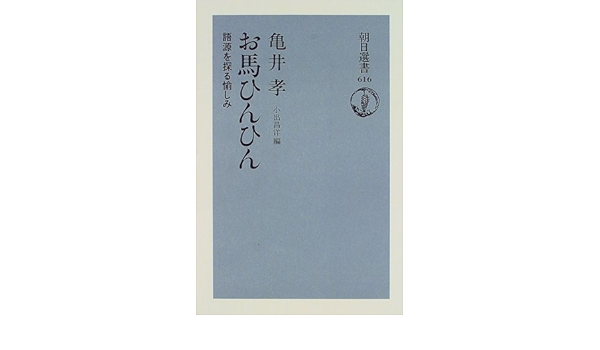 朝日選書
616
亀井孝
小出昌洋 編
お馬ひんひん
語源を探る愉しみ